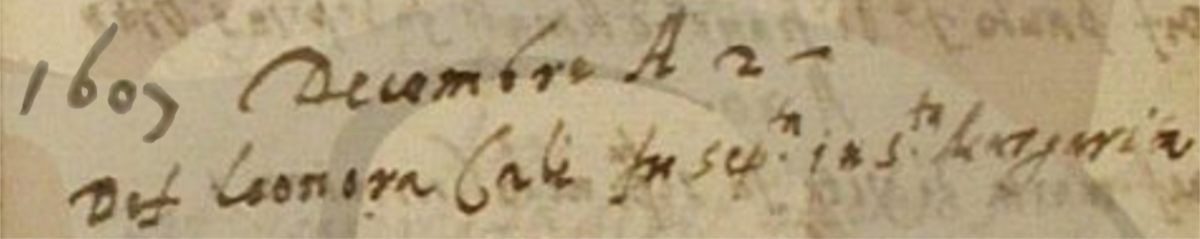 1607 Decembre A 2 -
Def Leonora Cali fu sep.ta in s.ta Margarita